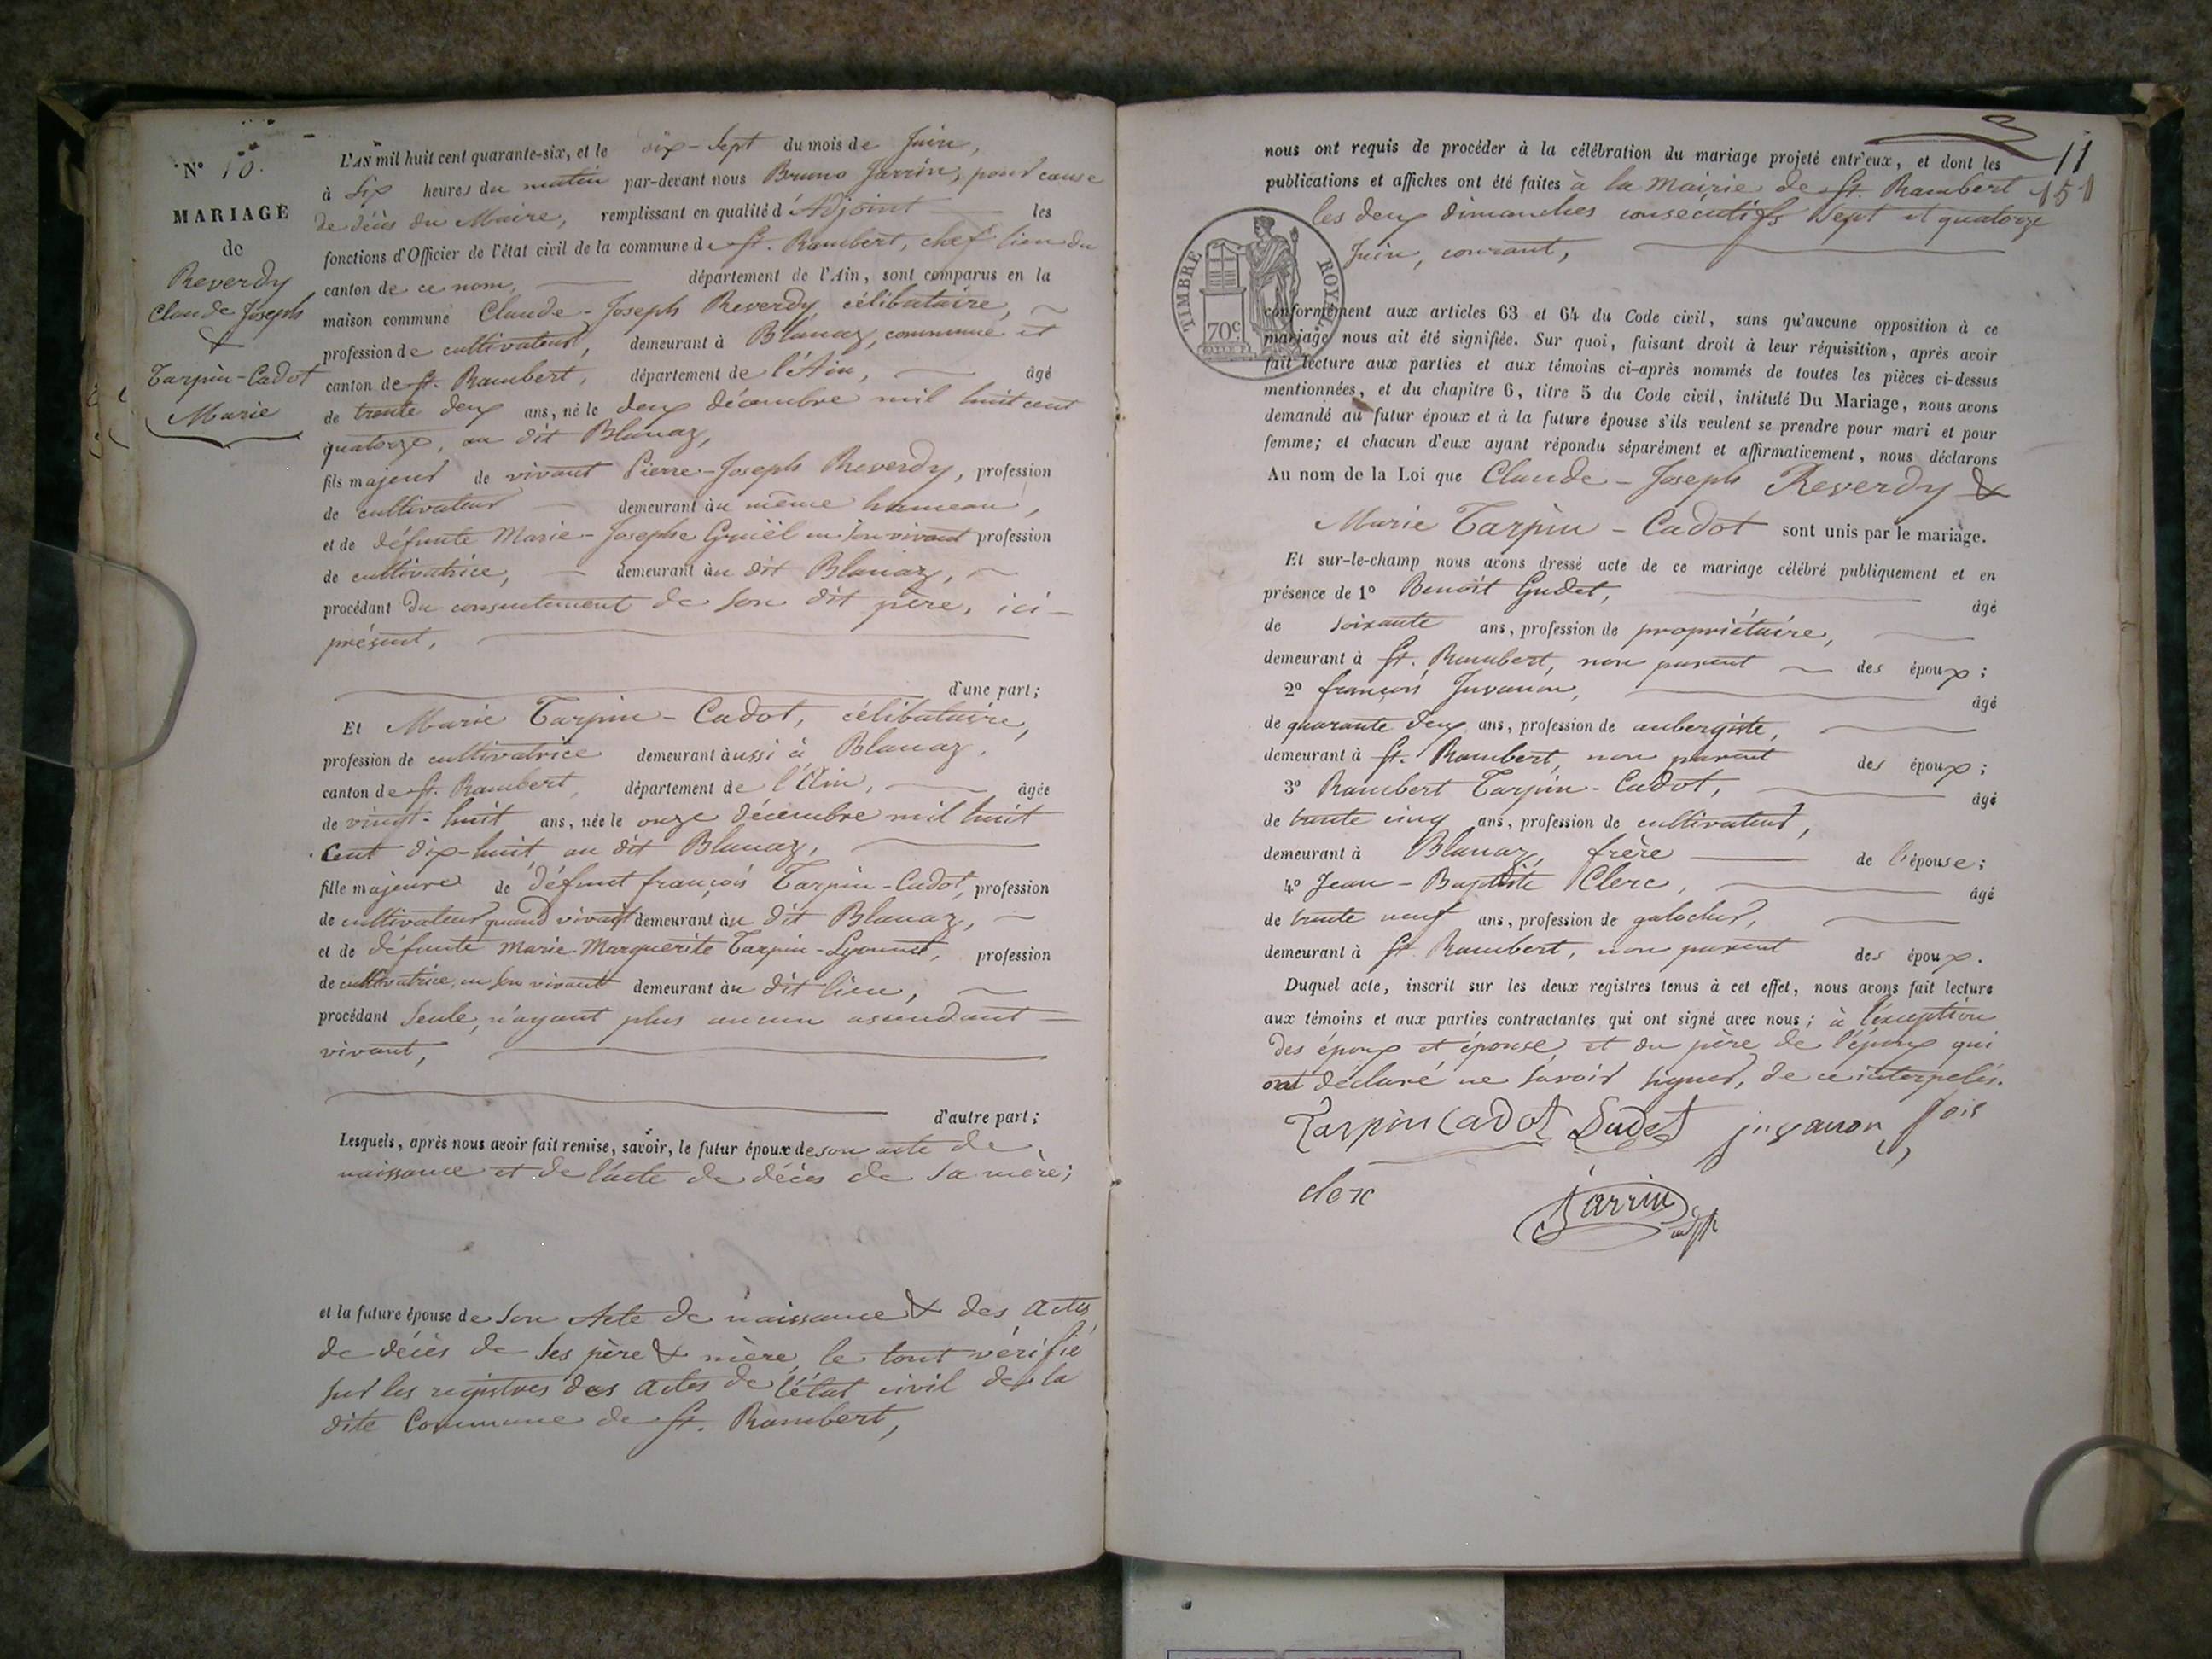 N° 10.
MARIAGE
de
Reverdy
Claude Joseph
&
Tarpin-Cadot
Marie
L'AN mil huit cent quarante-six, et le dix-sept du mois de Juin,
à six heures du matin par-devant nous Bruno Jarrin, pour cause
de décès du Maire, remplissant en qualité d'Adjoint les
fonctions d'Officier de l'état civil de la commune de St. Rambert, chef lieu du
canton de ce nom, département de l'Ain, sont comparus en la
maison commune Claude-Joseph Reverdy, célibataire,
profession de cultivateur, demeurant à Blanaz, commune et
canton de St. Rambert, département de l'Ain, âgé
de trente deux ans, né le deux décembre mil huit cent
quatorze, au dit Blanaz,
fils majeur de vivant Pierre-Joseph Reverdy, profession
de cultivateur demeurant au même hameau,
et de défunte Marie-Josephe Gruël en son vivant profession
de cultivatrice, demeurant au dit Blanaz,
procédant du consentement de son dit père, ici-
présent,
d'une part;
Et Marie Tarpin-Cadot, célibataire,
profession de cultivatrice demeurant aussi à Blanaz,
canton de St. Rambert, département de l'Ain, âgée
de vingt-huit ans, née le onze décembre mil huit
cent dix-huit, au dit Blanaz,
fille majeure de défunt françois Tarpin-Cadot, profession
de cultivateur quand vivait demeurant au dit Blanaz,
et de défunte Marie-Marguerite Tarpin-Lyonnet, profession
de cultivatrice, en son vivant demeurant au dit lieu,
procédant seule, n'ayant plus aucun ascendant
vivant,
d'autre part;
Lesquels, après nous avoir fait remise, savoir, le futur époux de son acte de
naissance et de l'acte de décès de sa mère;
et la future épouse de son Acte de naissance & des actes
de décès de ses père & mère, le tout vérifié
sur les registres des actes de l'état civil de la
dite Commune de St. Rambert,
11
151
nous ont requis de procéder à la célébration du mariage projeté entr'eux, et dont les
publications et affiches ont été faites à la Mairie de St. Rambert
les deux dimanches consécutifs sept et quatorze
Juin, courant,
TIMBRE ROYAL
70c
conformément aux articles 63 et 64 du Code civil, sans qu'aucune opposition à ce
mariage nous ait été signifiée. Sur quoi, faisant droit à leur réquisition, après avoir
fait lecture aux parties et aux témoins ci-après nommés de toutes les pièces ci-dessus
mentionnées, et du chapitre 6, titre 5 du Code civil, intitulé Du Mariage, nous avons
demandé au futur époux et à la future épouse s'ils veulent se prendre pour mari et pour
femme; et chacun d'eux ayant répondu séparément et affirmativement, nous déclarons
Au nom de la Loi que Claude-Joseph Reverdy &
Marie Tarpin-Cadot sont unis par le mariage.
Et sur-le-champ nous avons dressé acte de ce mariage célébré publiquement et en
présence de 1° Benoît Gudet, âgé
de soixante ans, profession de propriétaire,
demeurant à St. Rambert, non parent des époux;
2° françois Juvanon, âgé
de quarante deux ans, profession de aubergiste,
demeurant à St. Rambert, non parent des époux;
3° Rambert Tarpin-Cadot, âgé
de trente cinq ans, profession de cultivateur,
demeurant à Blanaz, frère de l'épouse;
4° Jean-Baptiste Clerc, âgé
de trente neuf ans, profession de galocher,
demeurant à St. Rambert, non parent des époux.
Duquel acte, inscrit sur les deux registres tenus à cet effet, nous avons fait lecture
aux témoins et aux parties contractantes qui ont signé avec nous; à l'exception
des époux et épouse, et du père de l'époux qui
ont déclaré ne savoir signer, de ce interpelés.
Tarpin Cadot Gudet juvanon fois
clerc
Jarrin adjt